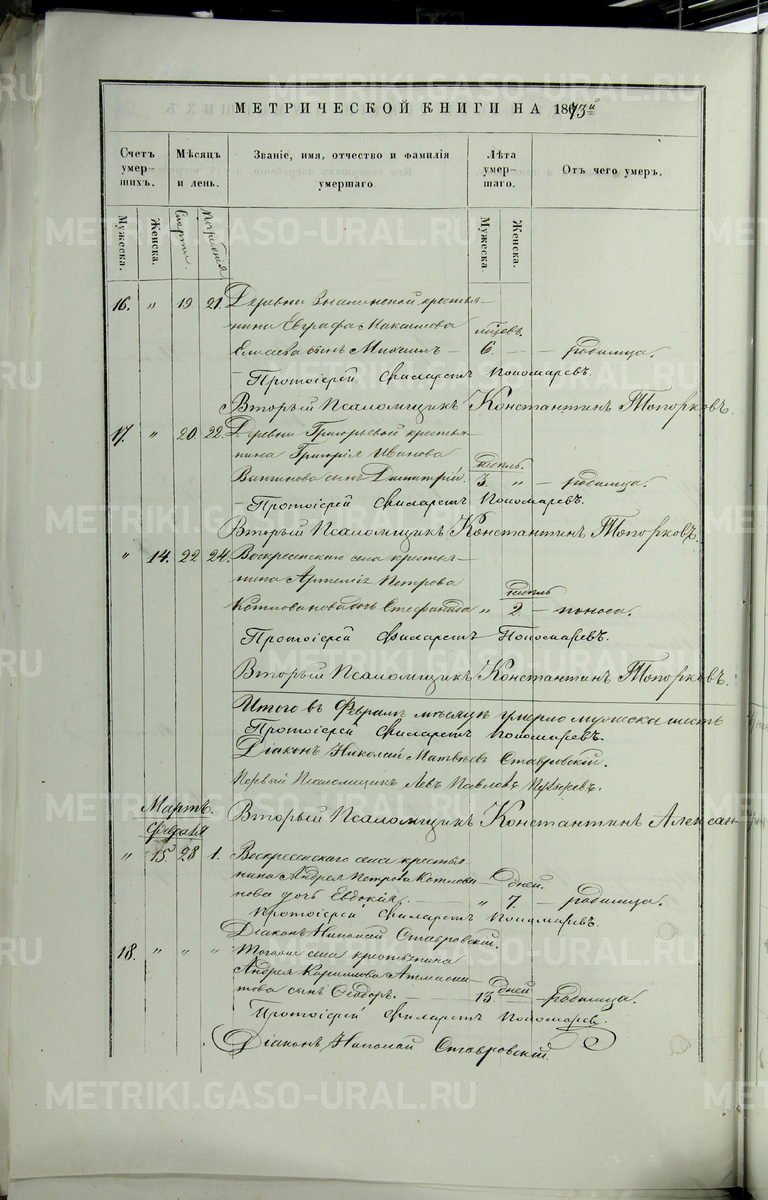 МЕТРИЧЕСКОЙ КНИГИ НА 1873й
Счетъ умер-шихъ.
Мѣсяцъ и день.
Званіе, имя, отчество и фамилія умершаго
Лѣта умер-шаго.
Отъ чего умеръ.
Мужеска.
Женска.
Смерти.
Погребенія
Мужеска
Женска.
16. „ 19 21. Деревни крестья-
нина Евграфа Максимова
Елисеева сынъ Михаилъ — 6. — родимца.
Протоіерей Филаретъ Пономаревъ.
Вторый Псаломщикъ Константинъ Топорковъ.
17. „ 20. 22. Деревни Григорьевой крестья-
нина Григорія Иванова
недѣль.
сынъ Димитрій. 3. „ — родимца.
Протоіерей Филаретъ Пономаревъ.
Вторый Псаломщикъ Константинъ Топорковъ.
„ 14. 22 24. Воскресенскаго села крестья-
нина Артемія Петрова
недѣль
Котлованова дочь Стефанида „ 2 — поноса.
Протоіерей Филаретъ Пономаревъ.
Вторый Псаломщикъ Константинъ Топорковъ.
Итого въ Февралѣ мѣсяцѣ умерло мужеска шесть
Протоіерей Филаретъ Пономаревъ.
Діаконъ Николай Матвѣевъ Ставровскій.
Первый Псаломщикъ Левъ Павловъ
Вторый Псаломщикъ Константинъ Алексан-
Мартъ.
Февраля
„ 15 28 1. Воскресенскаго села крестья
нина Андрея Петрова Котлова- дней.
нова дочь Евдокія. „ 7. — родимца.
Протоіерей Филаретъ Пономаревъ.
Діаконъ Николай Ставровскій.
18. „ „ „ Тогоже села крестьянина
Андрея Кириллова
дней
сынъ Ѳеодоръ. — 13 — родимца.
Протоіерей Филаретъ Пономаревъ.
Діаконъ Николай Ставровскій.
METRIKI.GASO-URAL.RU